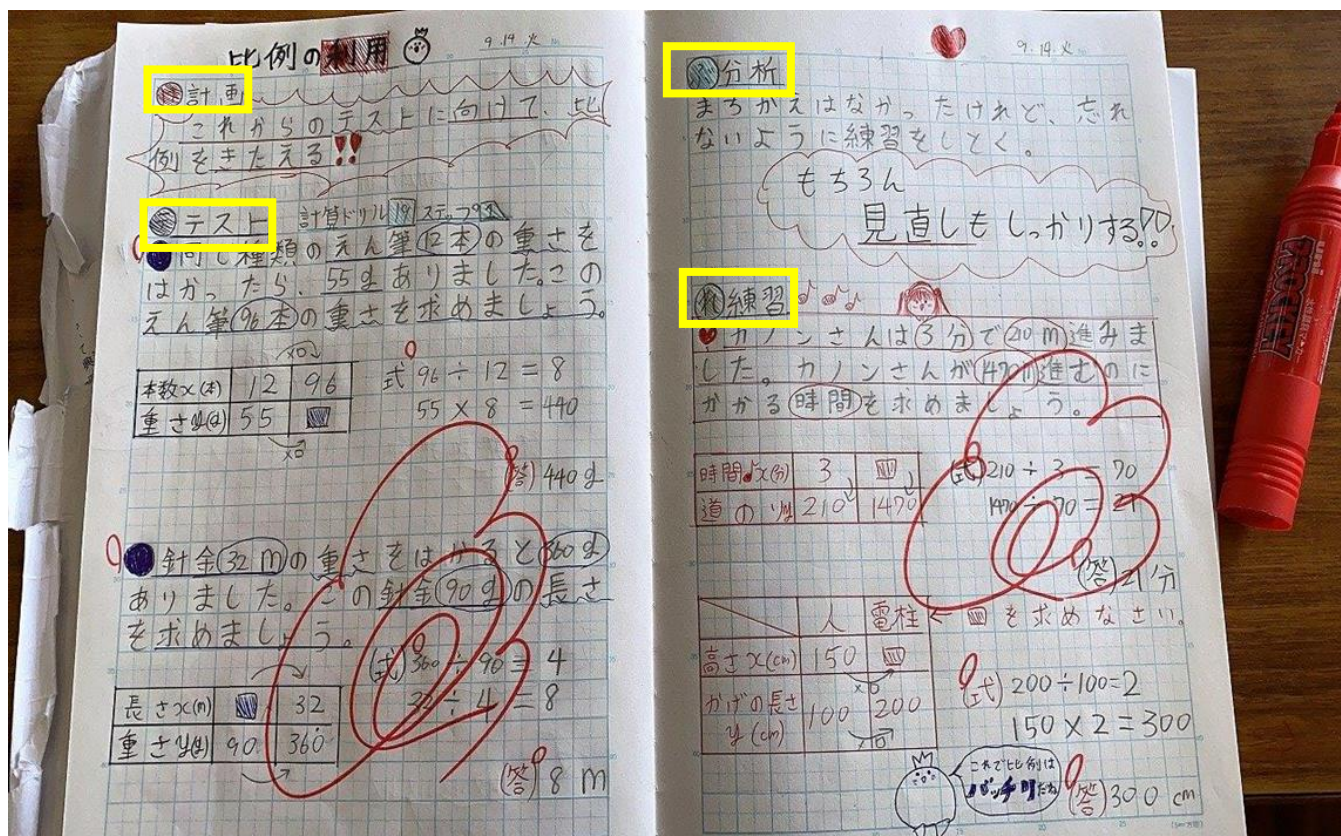 比例の利用
9.14.火
け計画
これからのテストに向けて、比
例をきたえる!!
テテスト 計算ドリル19 ステップ
同じ種類のえん筆12本の重さを
はかったら、55gありました。この
えん筆96本の重さを求めましょう。
×□
本数x(本) 12 96
重さy(g) 55
×□
式 96÷12=8
55×8=440
(答)440g
針金32mの重さをはかると360g
ありました。この針金90gの長さ
を求めましょう。
(式)360÷90=4
32÷4=8
長さx(m) 32
重さy(g) 90 360
(答)8m
9.14.火
分析
まちがえはなかったけれど、忘れ
ないように練習をしとく。
もちろん
見直しもしっかりする!?
れ練習
カノンさんは3分で210m進みま
した。カノンさんが1470m進むのに
かかる時間を求めましょう。
時間x(分) 3
道のりy 210 1470
(式)210÷3=70
1470÷70=21
(答)21分
人 電柱 ← を求めなさい。
高さx(cm) 150
×□
かげの長さ
y(cm) 100 200
×□
(式)200÷100=2
150×2=300
これで比例は
バッチリだね
(答)300cm
uni
PROCKEY